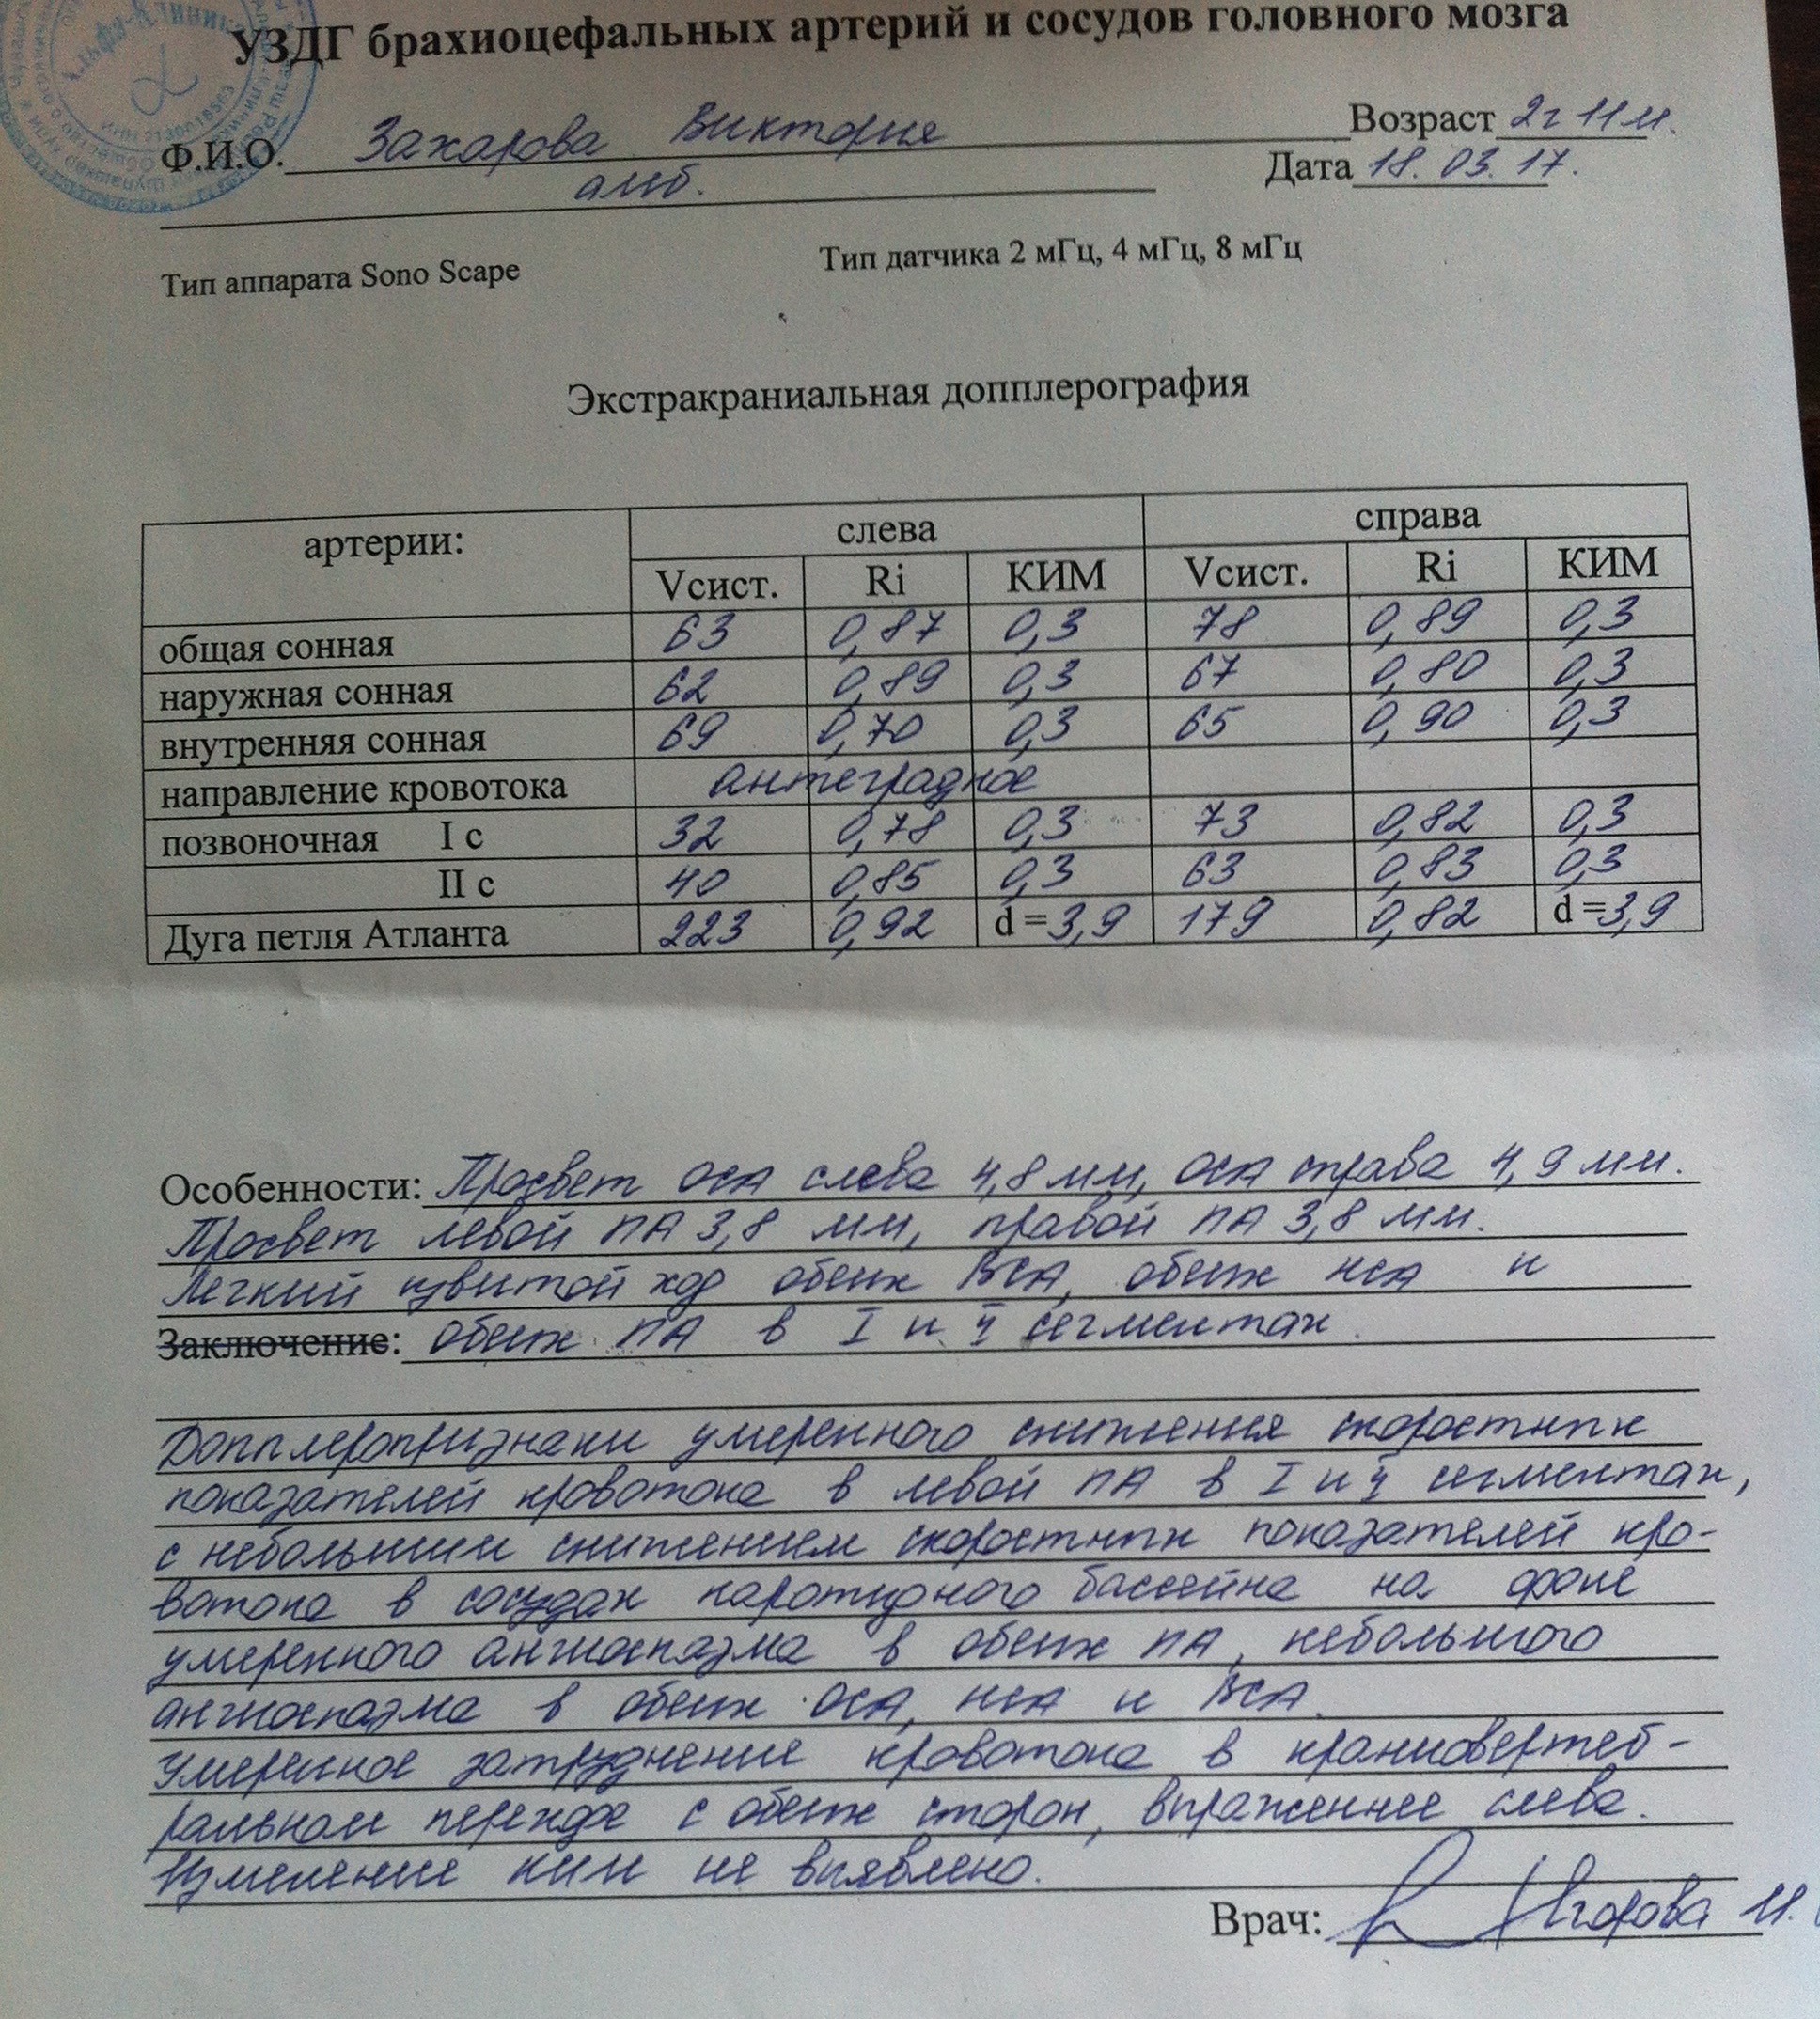 УЗДГ брахиоцефальных артерий и сосудов головного мозга
Ф.И.О. Захарова Виктория Возраст 2г 11м.
амб. Дата 18.03.17.
Тип аппарата Sono Scape Тип датчика 2 мГц, 4 мГц, 8 мГц
Экстракраниальная допплерография
артерии: слева справа
Vсист. Ri КИМ Vсист. Ri КИМ
общая сонная 63 0,87 0,3 78 0,89 0,3
наружная сонная 62 0,89 0,3 67 0,80 0,3
внутренняя сонная 69 0,70 0,3 65 0,90 0,3
направление кровотока антеградное
позвоночная I с 32 0,78 0,3 73 0,82 0,3
II с 40 0,85 0,3 63 0,83 0,3
Дуга петля Атланта 223 0,92 d = 3,9 179 0,82 d = 3,9
Особенности: Просвет ОСА слева 4,8 мм, ОСА справа 4,9 мм.
Просвет левой ПА 3,8 мм, правой ПА 3,8 мм.
Легкий извитой ход обеих ВСА, обеих НСА и
Заключение: обеих ПА в I и II сегментах.
Допплеропризнаки умеренного снижения скоростных
показателей кровотока в левой ПА в I и II сегментах,
с небольшим снижением скоростных показателей кро-
вотока в сосудах каротидного бассейна на фоне
умеренного ангиоспазма в обеих ПА, небольшого
ангиоспазма в обеих ОСА, НСА и ВСА.
Умеренное затруднение кровотока в краниовертеб-
ральном переходе с обеих сторон, выраженнее слева.
Изменение КИМ не выявлено.
Врач: Егорова И.